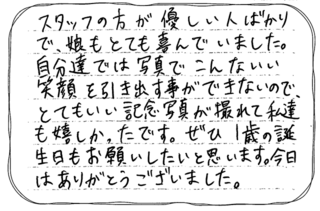 スタッフの方が優しい人ばかり
で、娘もとても喜んでいました。
自分達では写真でこんないい
笑顔を引き出す事ができないので、
とてもいい記念写真が撮れて私達
も嬉しかったです。ぜひ1歳の誕
生日もお願いしたいと思います。今日
はありがとうございました。